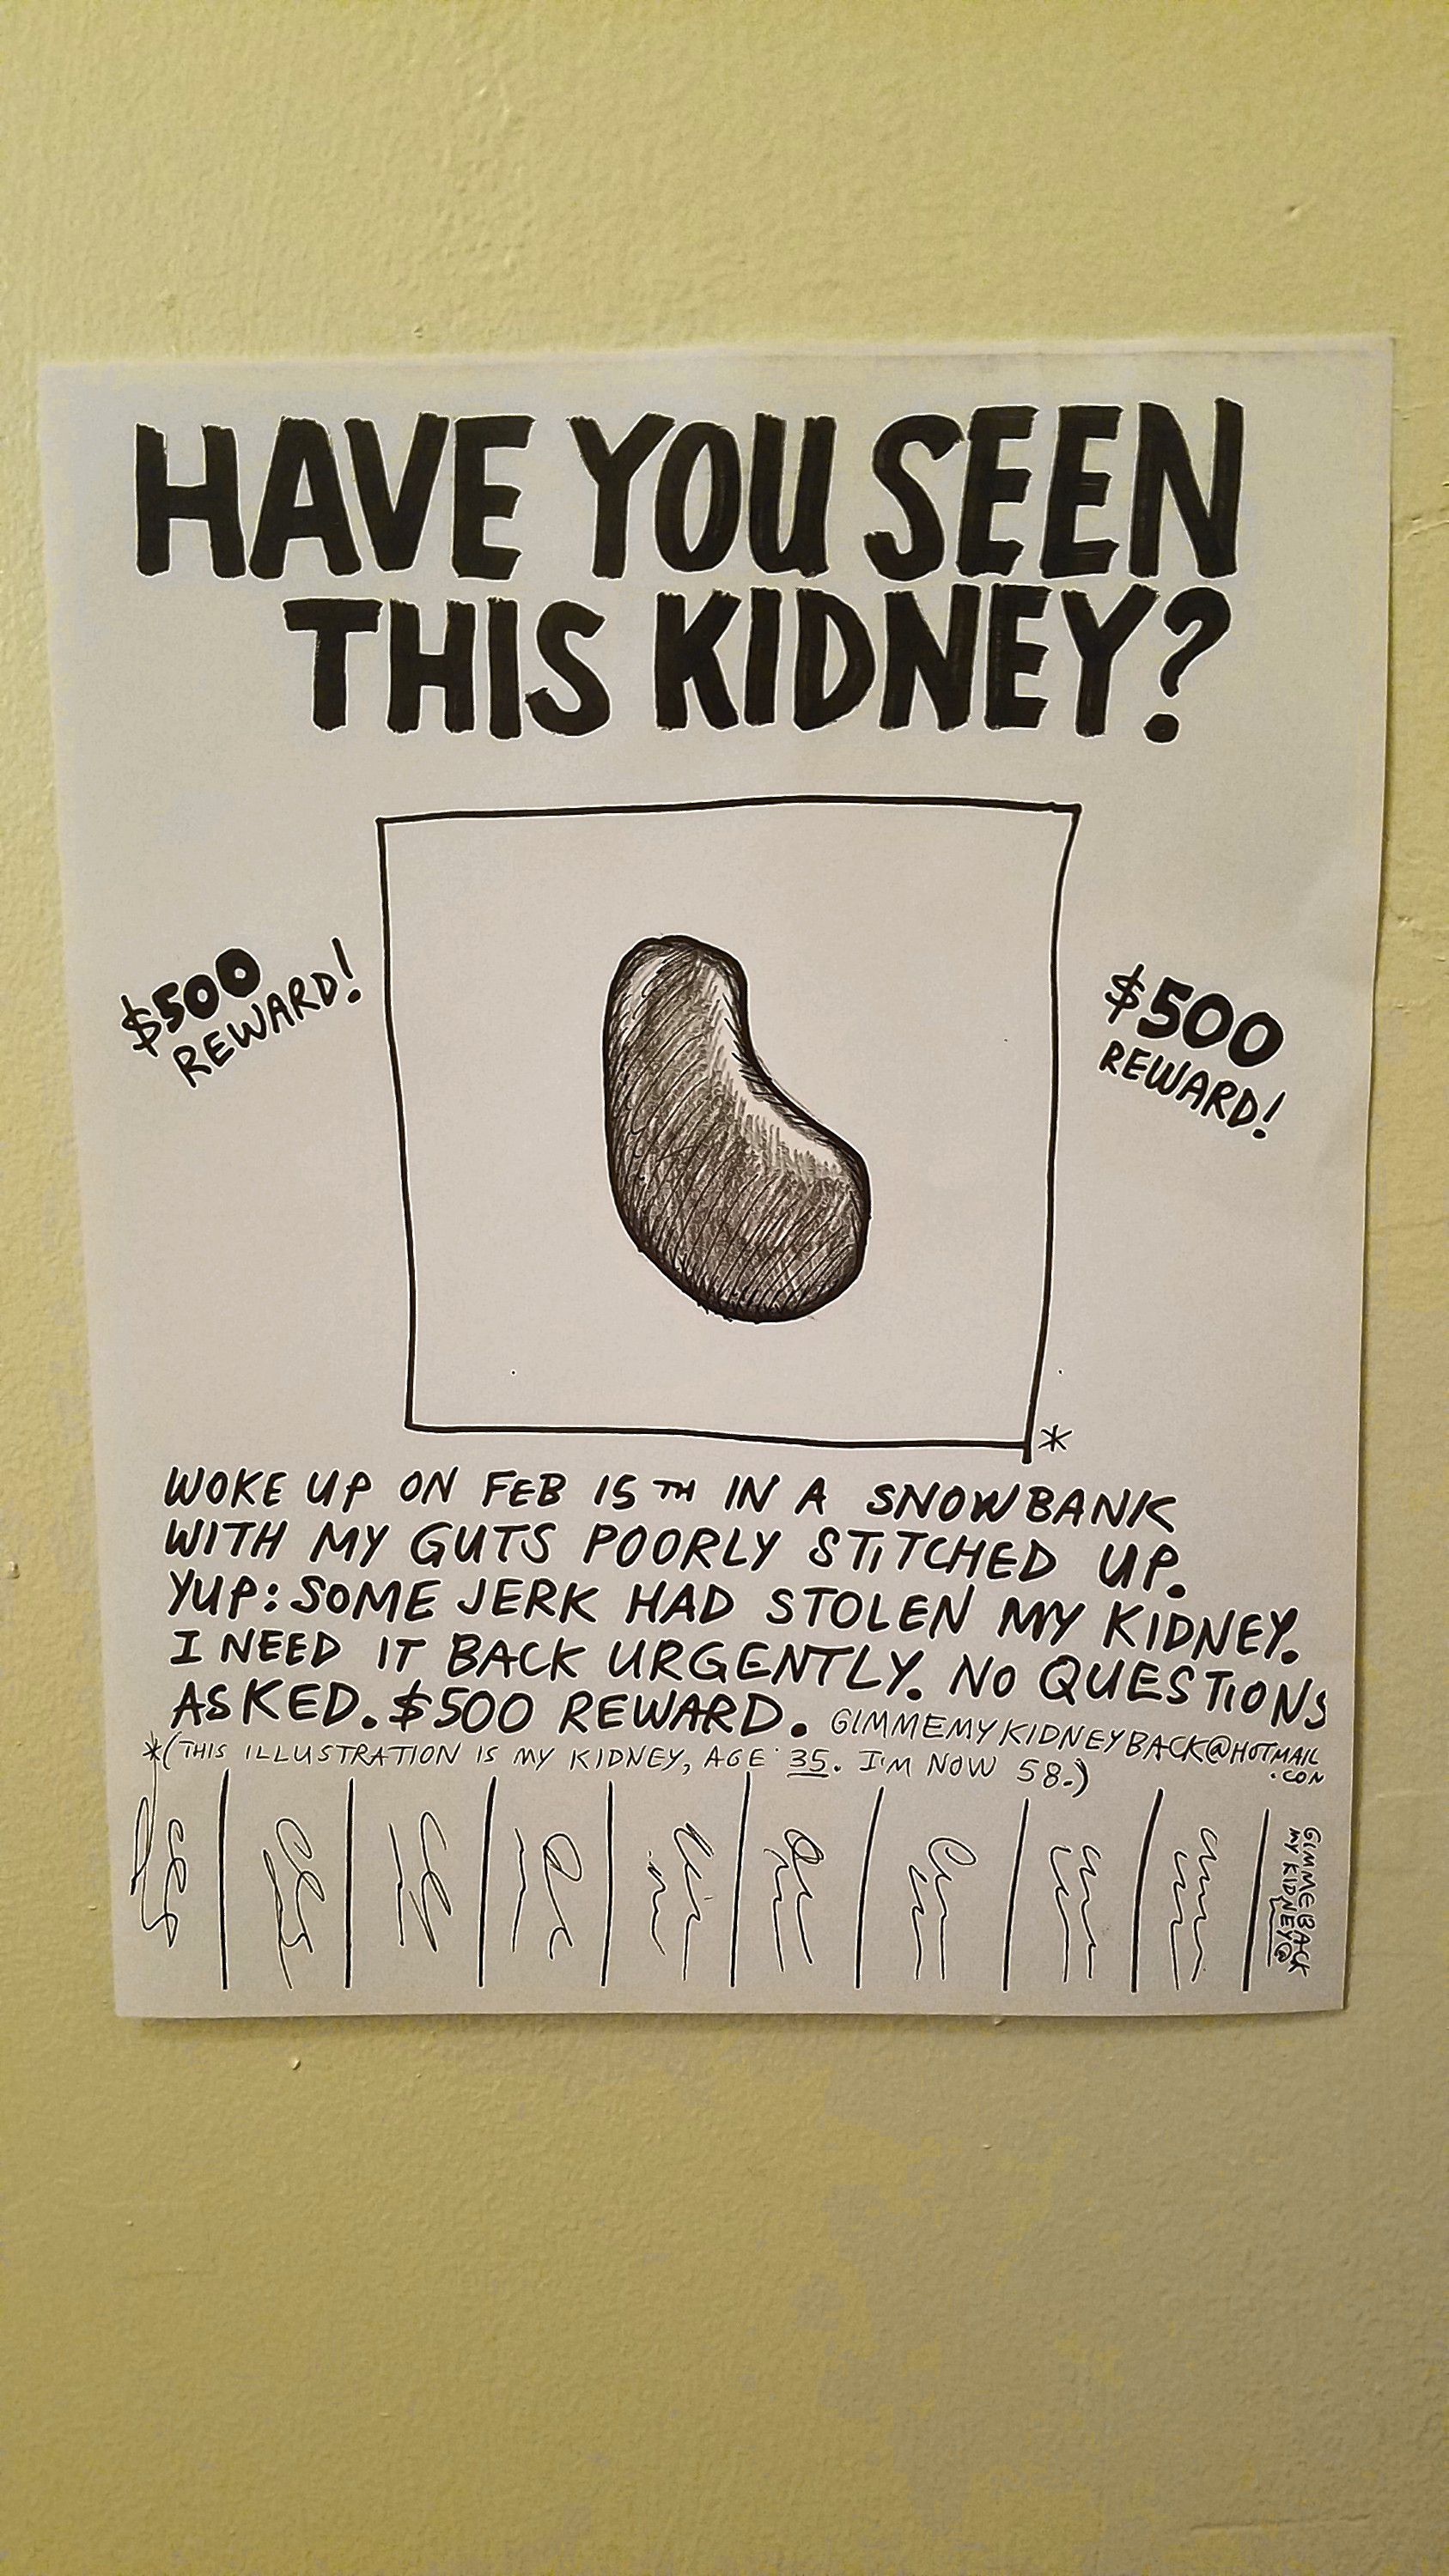 HAVE YOU SEEN
THIS KIDNEY?
$500
REWARD!
$500
REWARD!
*
WOKE UP ON FEB 15TH IN A SNOWBANK
WITH MY GUTS POORLY STITCHED UP.
YUP: SOME JERK HAD STOLEN MY KIDNEY.
I NEED IT BACK URGENTLY. NO QUESTIONS
ASKED. $500 REWARD. GIMMEMYKIDNEYBACK@HOTMAIL
.COM
*(THIS ILLUSTRATION IS MY KIDNEY, AGE 35. I'M NOW 58.)
GIMMEBACK
MY KIDNEY@